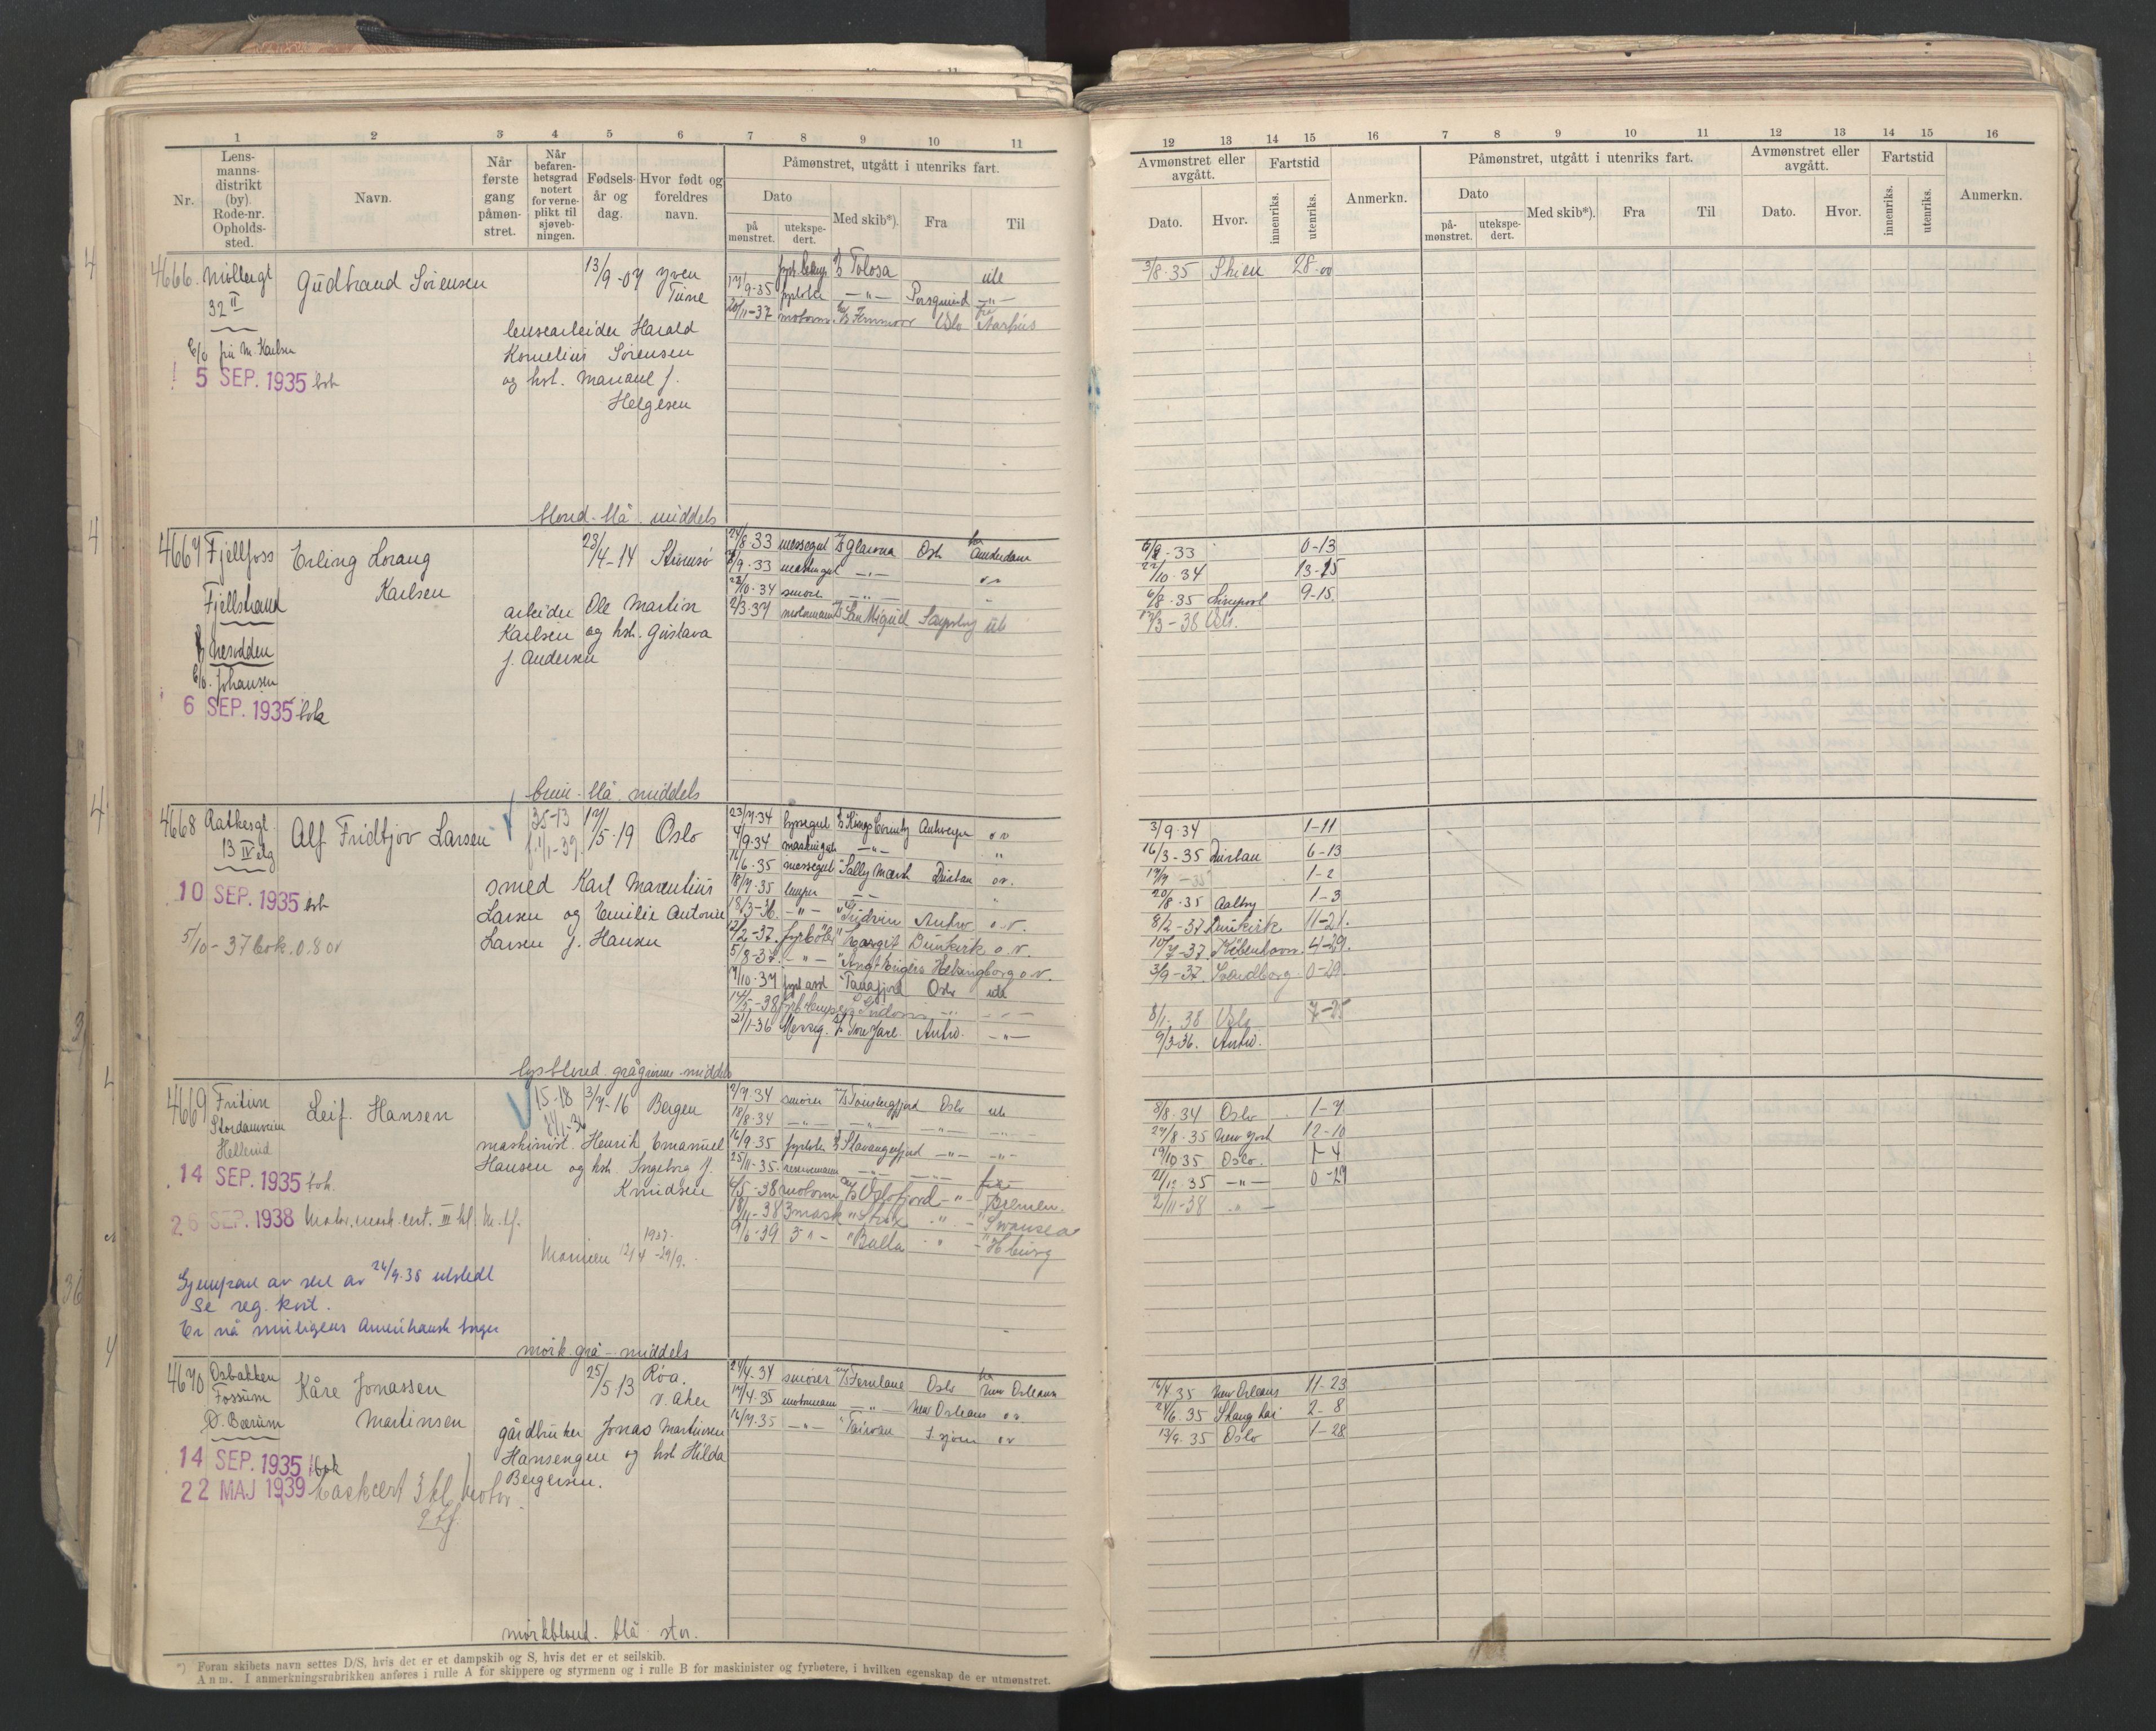 1 2 3 4 5 6 7 8 9 10 11
Nr. Lens-manns-distrikt (by). Rode-nr. Opholds-sted. Navn. Når første gang påmøn-stret. Når befaren-hetsgrad notert for verne-plikt til sjøveb-ningen. Fødsels-år og dag. Hvor født og foreldres navn. Påmønstret, utgått i utenriks fart.
Dato Med skib*). Fra Til
på mønstret. utekspe-dert.
4666. Møllergt 32 II Gudbrand Sørensen 13/9-07 Yven Tune
Tolosa ute
17/9-35 fyrbøter -"- Porsgrund -"-
20/11-37 motorm. Oslo Aarhus
c/o fru M. Karlsen
lensearbeider Harald
Kornelius Sørensen
5 SEP. 1935 bok
og hst. Mariane f.
Helgesen
blond - blå - middels
4667 Fjellfoss Erling Lorang Karlsen 23/4-14 Strømsø
Fjellstrand
24/8.33 messegut Glarona Oslo Amsterdam
/9.33 maskingut -"- ov
22/10.34 smører -"-
2/3.37 motormann San Miguel Sarpsborg ut
arbeider Ole Martin
Karlsen og hst. Gustava
f. Andersen
p Nesodden
c/o. Johansen
6 SEP. 1935 bok
brun - blå - middels
4668 Aatkesgt 13 IV etg Alf Fridtjov Larsen 35-13 17/5-19 Oslo
23/7.34 byssegut Kings County Antwerpen ov
4/9.34 maskingut -"- "
16/6.35 messegut Sally Mærsk Durban ov.
18/7.35 lemper -"-
18/3-36. -"- Gudrin Antw o.v.
12/2-37. fyrbøter " Dunkirk o.v.
5/8-37. -"- Helsingborg o.v.
/10.37 Tanafjord Oslo ute
14/5.-38
21/1-36 Messeg. Antw. -"-
smed Karl Marentius
Larsen og Emilie Antonie
Larsen f. Hansen
10 SEP. 1935 bok
5/10-37 bok. o.8 ov
lysblond - grågrønne - middels
4669 Fritun Leif. Hansen 15-18 3/7-16 Bergen
Stordamveien
Hellerud
2/7.34 smører Tønsbergfjord Oslo ute
18/8.34 -"- -"- -"- -"-
16/9.35 fyrbøter Stavangerfjord -"- -"-
25/11-35. reservemann -"- -"-
4/5.-38 motorm Oslofjord -"- Bremen.
18/11-38 3 mask " -"- Swansea
9/6-39 3 "- "Balla " - "Hburg
maskinist. Henrik Emanuel
Hansen og hst. Ingeborg f.
Knudsen
14 SEP. 1935 bok.
26 SEP. 1938 Motor.mask.cert. III kl.
1937.
Marinen 12/4 - 29/9.
Gjenpart av av 26/9.38 utstedt
Se reg. kort.
Er nå muligens Amerikansk borger
mørk - grå - middels
4670 Osbakken Kåre Jonassen Martinsen 25/5 13 Røa. v. Aker
Fossum
Ø. Bærum
24/4.34 smører Fernlane Oslo New Orleans
17/4.35 motormann -"- New Orleans ov.
16/7.35 -"- "Taiwan ov
gårdbruker Jonas Martinsen
Hansengen og hst Hilda
Bergersen.
14 SEP. 1935 bok
22 MAJ 1939 Maskcert 3 kl. Motor.
mørkblond. blå - stor.
*) Foran skibets navn settes D/S, hvis det er et dampskib og S, hvis det er et seilskib.
Anm. I anmerkningsrubrikken anføres i rulle A for skippere og styrmenn og i rulle B for maskinister og fyrbøtere, i hvilken egenskap de er utmønstret.
12 13 14 15 16 7 8 9 10 11 12 13 14 15 16
Avmønstret eller avgått. Fartstid Anmerkn. Påmønstret, utgått i utenriks fart. Avmønstret eller avgått. Fartstid Anmerkn.
Dato. Hvor. innenriks. utenriks. Dato på-mønstret. utekspe-dert. Med skib*). Fra Til Dato. Hvor. innenriks. utenriks.
3/8.35 Skien 28-00
6/9-33 0-13
22/10.34 13-15
6/8-35 Liverpool 9-15.
17/3-38 Oslo.
3/9.34 1-11
16/3-35 Durban 6-13
17/7-35 1-2
20/8.35 Aalborg 1-3
8/2-37 Dunkirk 11-21.
10/7-37 København 4-29.
3/9-37. Svendborg 0-29.
8/1, 38 Oslo 7-25
9/3-36. Antw.
8/8.34 Oslo 1-7
27/8.35 New York 12-10
19/10 35 Oslo. 1-4
21/12 35 -"- 0-29
2/11-38 " -
16/4 35 New Orleans 11-23
24/6.35 Shanghai 2-8
13/9.35 Oslo 1-28